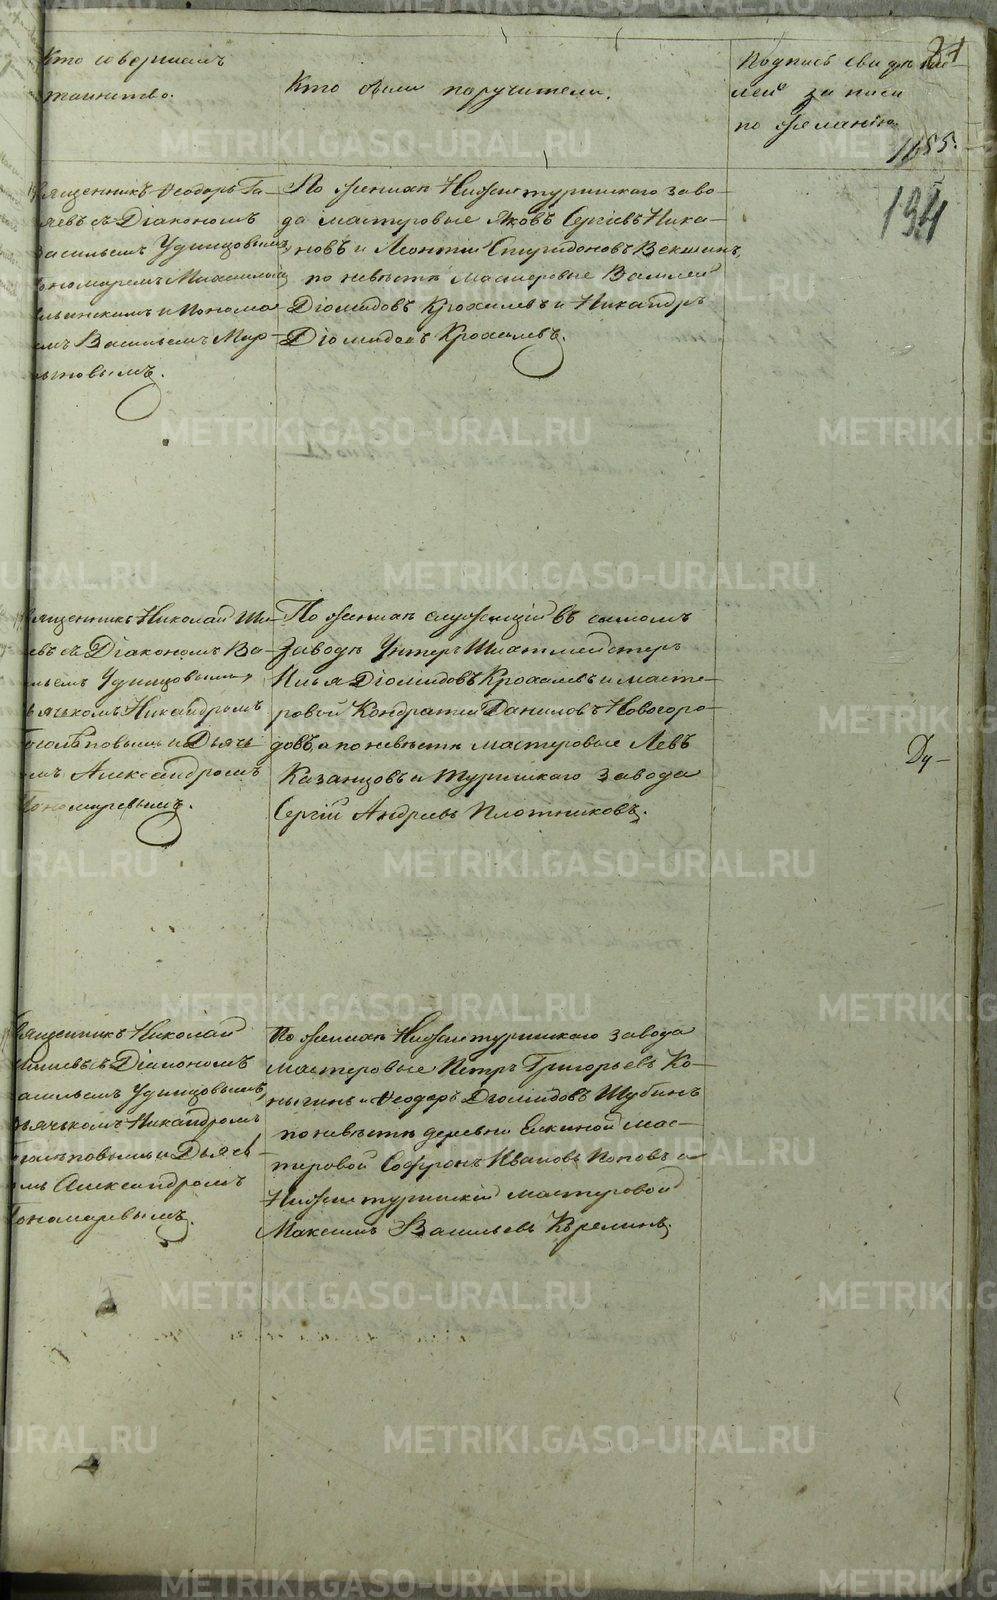 Кто совершалъ
таинство.
Кто были поручители.
Подпись свидѣте-
лей записи
по желанію.
21
1155.
194
священникъ Ѳеодоръ Га-
яевъ съ Діакономъ
Васильемъ Удинцовымъ,
пономаремъ Михаиломъ
и Понома
емъ Васильемъ Мар-
тыновымъ.
По женихѣ Нижнетуринскаго заво-
да мастеровые Яковъ Сергіевъ Ника-
новъ и Леонтій Спиридоновъ Векшинъ,
по невѣстѣ мастеровые Василей
Діомидовъ Крохалевъ и Никандръ
Діомидовъ Крохалевъ.
Священникъ Николай Ши-
евъ съ Діакономъ Ва-
ильемъ Удинцовымъ,
дьячькомъ Никандромъ
и Дьячь
омъ Александромъ
Пономаревымъ.
По женихѣ служащій въ самомъ
Заводѣ Унтеръ Шихтмейстеръ
Илья Діомидовъ Крохалевъ и масте-
ровой Кондратій Даниловъ Новогоро-
довъ, а по невѣстѣ мастеровые Левъ
Казанцовъ и Туринскаго завода
Сергій Андреевъ Плотниковъ.
Ду-
Священникъ Николай
Шишевъ съ Діакономъ
Васильемъ Удинцовымъ,
дьячькомъ Никандромъ
и Дьячь
омъ Александромъ
Пономаревымъ.
По женихѣ Нижнетуринскаго завода
мастеровые Петръ Григорьевъ Ко-
ныгинъ и Ѳеодоръ Діомидовъ Шубинъ
по невѣстѣ деревни Елкиной мас-
теровой Софронъ Ивановъ Поповъ и
Нижнетуринскій мастеровой
Максимъ Васильевъ
METRIKI.GASO-URAL.RU